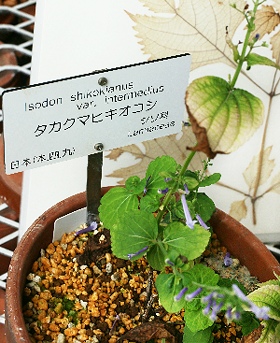 Isodon shikokianus
var. intermedius
タカクマヒキオコシ
シソ科
Lamiaceae
日本(本,四,九)